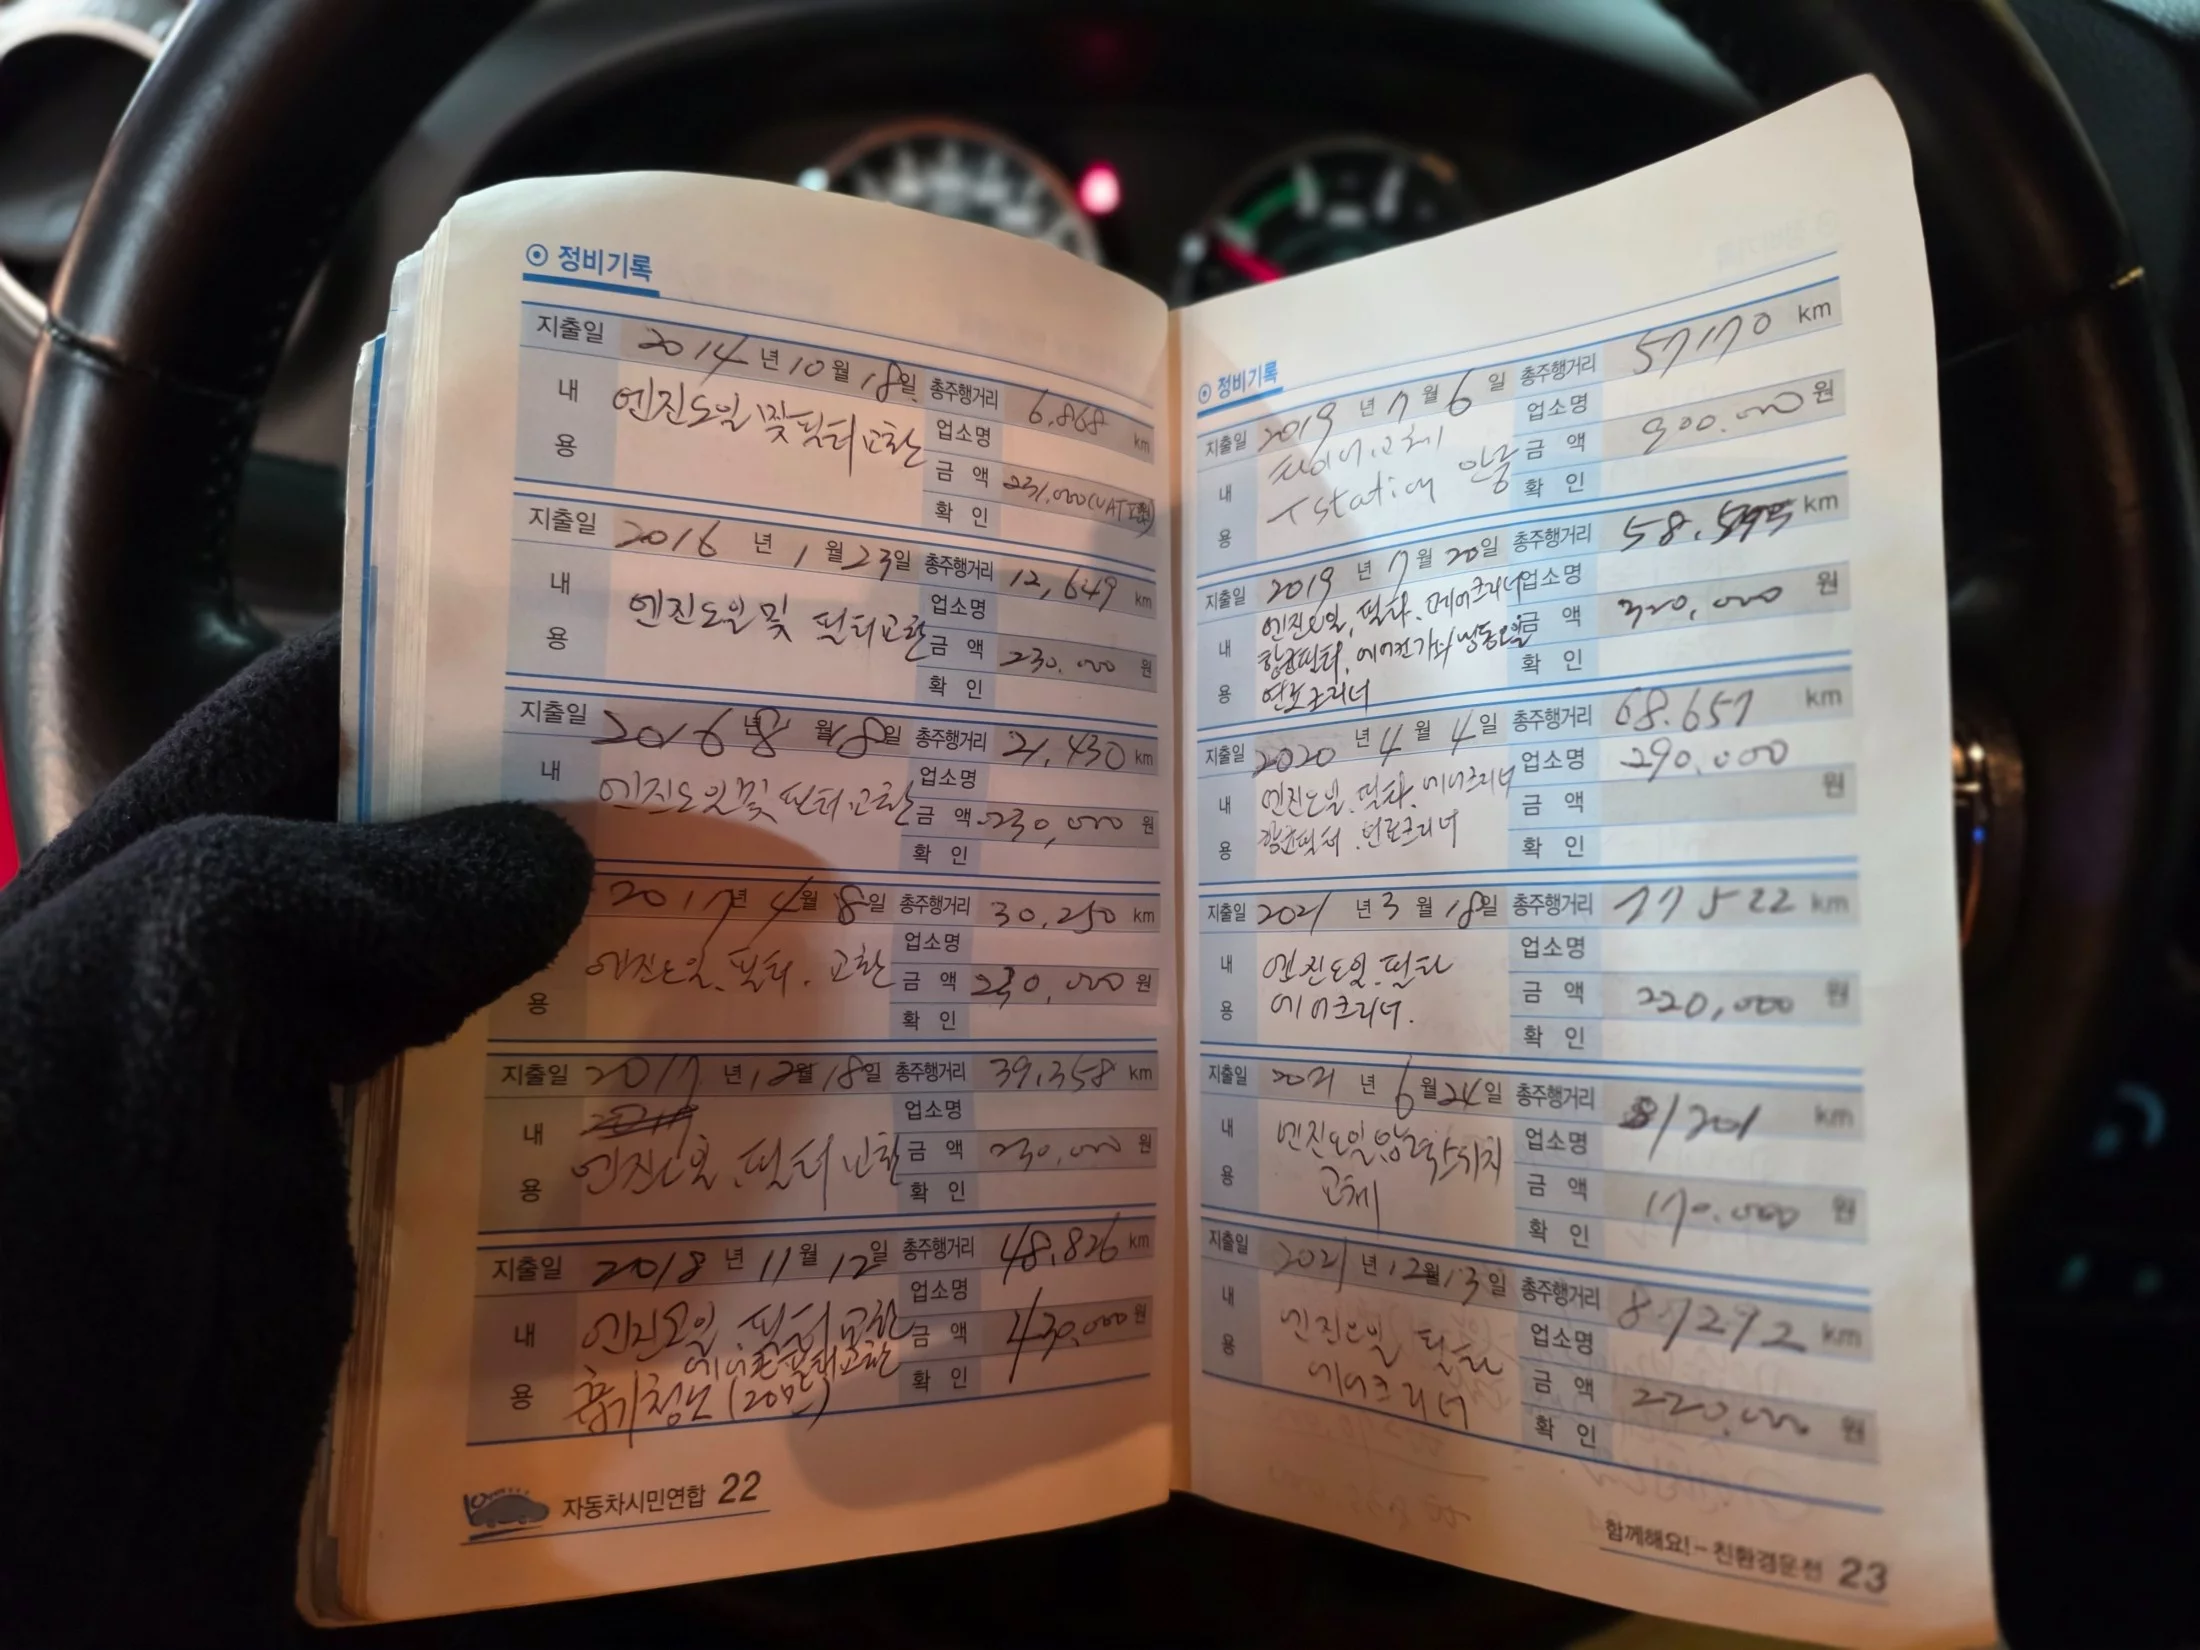 정비기록
지출일 2014년 10월 18일 총주행거리 6,868 km
내용 엔진오일 및 필터교환 업소명
금액 231,000(VAT
확인
지출일 2016년 1월 23일 총주행거리 12,649 km
내용 엔진오일 및 필터교환 업소명
금액 230,000 원
확인
지출일 2016년 8월 18일 총주행거리 21,430 km
내 엔진오일 및 필터교환 업소명
금액 230,000 원
확인
2017년 4월 8일 총주행거리 30,250 km
용 엔진오일. 필터. 교환 업소명
금액 230,000 원
확인
지출일 2017년 12월 18일 총주행거리 39,358 km
내용 엔진오일. 필터 교환 업소명
금액 230,000 원
확인
지출일 2018년 11월 12일 총주행거리 48,826 km
내용 엔진오일. 필터 교환 업소명
금액 430,000 원
(20만) 확인
자동차시민연합 22
정비기록
지출일 2019년 7월 6일 총주행거리 57170 km
내용 타이어.교체 업소명
Tstation 금액 900.000 원
확인
지출일 2019년 7월 20일 총주행거리 58. km
내용 엔진오일, 필타. 에어크리너 업소명
항균필터, 에어컨가스 냉동오일 금액 320,000 원
확인
지출일 2020년 4월 4일 총주행거리 68.657 km
내용 엔진오일. 필타. 에어크리너 업소명 290.000
항균필터. 금액 원
확인
지출일 2021년 3월 18일 총주행거리 77522 km
내용 엔진오일. 필타 업소명
에어크리너. 금액 220,000 원
확인
지출일 2021년 6월 24일 총주행거리 81201 km
내용 엔진오일.압력스위치 업소명
교체 금액 170.000 원
확인
지출일 2021년 12월 13일 총주행거리 87292 km
내용 엔진오일 필타 업소명
에어크리너 금액 220,000 원
확인
함께해요!-친환경운전 23